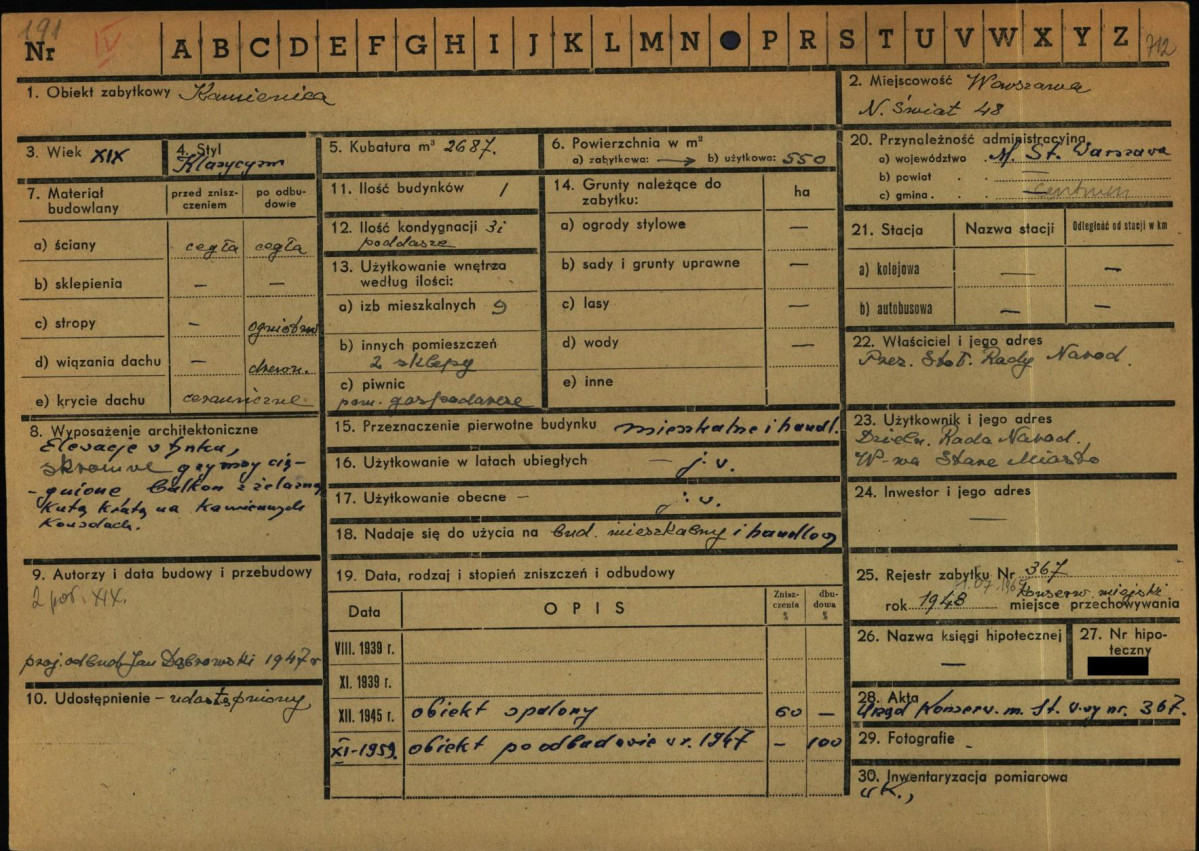 191
Nr IV A B C D E F G H I J K L M N P R S T U V W X Y Z 712
1. Obiekt zabytkowy Kamienica
2. Miejscowość Warszawa
N. Świat 48
3. Wiek XIX
4. Styl
Klasycyzm
5. Kubatura m³ 2687.
6. Powierzchnia w m²
a) zabytkowa: → b) użytkowa: 550
20. Przynależność administracyjna
a) województwo M. St. Warszawa
b) powiat . . —
c) gmina . . centrum
7. Materiał budowlany
przed zniszczeniem
po odbudowie
a) ściany cegła cegła
b) sklepienia – –
c) stropy –
d) wiązania dachu – drewn.
e) krycie dachu ceramiczne
11. Ilość budynków 1
12. Ilość kondygnacji 3 i
poddasze
13. Użytkowanie wnętrza
według ilości:
a) izb mieszkalnych 9
b) innych pomieszczeń
2 sklepy
c) piwnic
pom. gospodarcze
14. Grunty należące do
zabytku: ha
a) ogrody stylowe —
b) sady i grunty uprawne —
c) lasy —
d) wody —
e) inne
21. Stacja Nazwa stacji Odległość od stacji w km
a) kolejowa — —
b) autobusowa — —
22. Właściciel i jego adres
Prez. Stoł. Rady Narod.
8. Wyposażenie architektoniczne
Elewacje w tynku,
skromne gzymsy cią-
-gnione balkon z żelazną
kutą kratą na kamiennych
konsolach.
15. Przeznaczenie pierwotne budynku mieszkalne i handl.
16. Użytkowanie w latach ubiegłych — j. w.
17. Użytkowanie obecne – j. w.
18. Nadaje się do użycia na bud. mieszkalny i handlowy
23. Użytkownik i jego adres
Dzieln. Rada Narod.,
W-wa Stare Miasto
24. Inwestor i jego adres
—
9. Autorzy i data budowy i przebudowy
2 poł. XIX.
proj. odbud. Jan Dąbrowski 1947 r
10. Udostępnienie – udostępniony
19. Data, rodzaj i stopień zniszczeń i odbudowy
Data OPIS Zniszczenia % dbudowa %
VIII. 1939 r.
XI. 1939 r.
XII. 1945 r. obiekt spalony 60 —
XI-1959. obiekt po odbudowie w r. 1947 – 100
25. Rejestr zabytku Nr 367
rok 1948 konserw. miejski
miejsce przechowywania
26. Nazwa księgi hipotecznej
—
27. Nr hipoteczny
28. Akta
Urząd Konserw. m. St. W-wy nr. 367.
29. Fotografie -
30. Inwentaryzacja pomiarowa